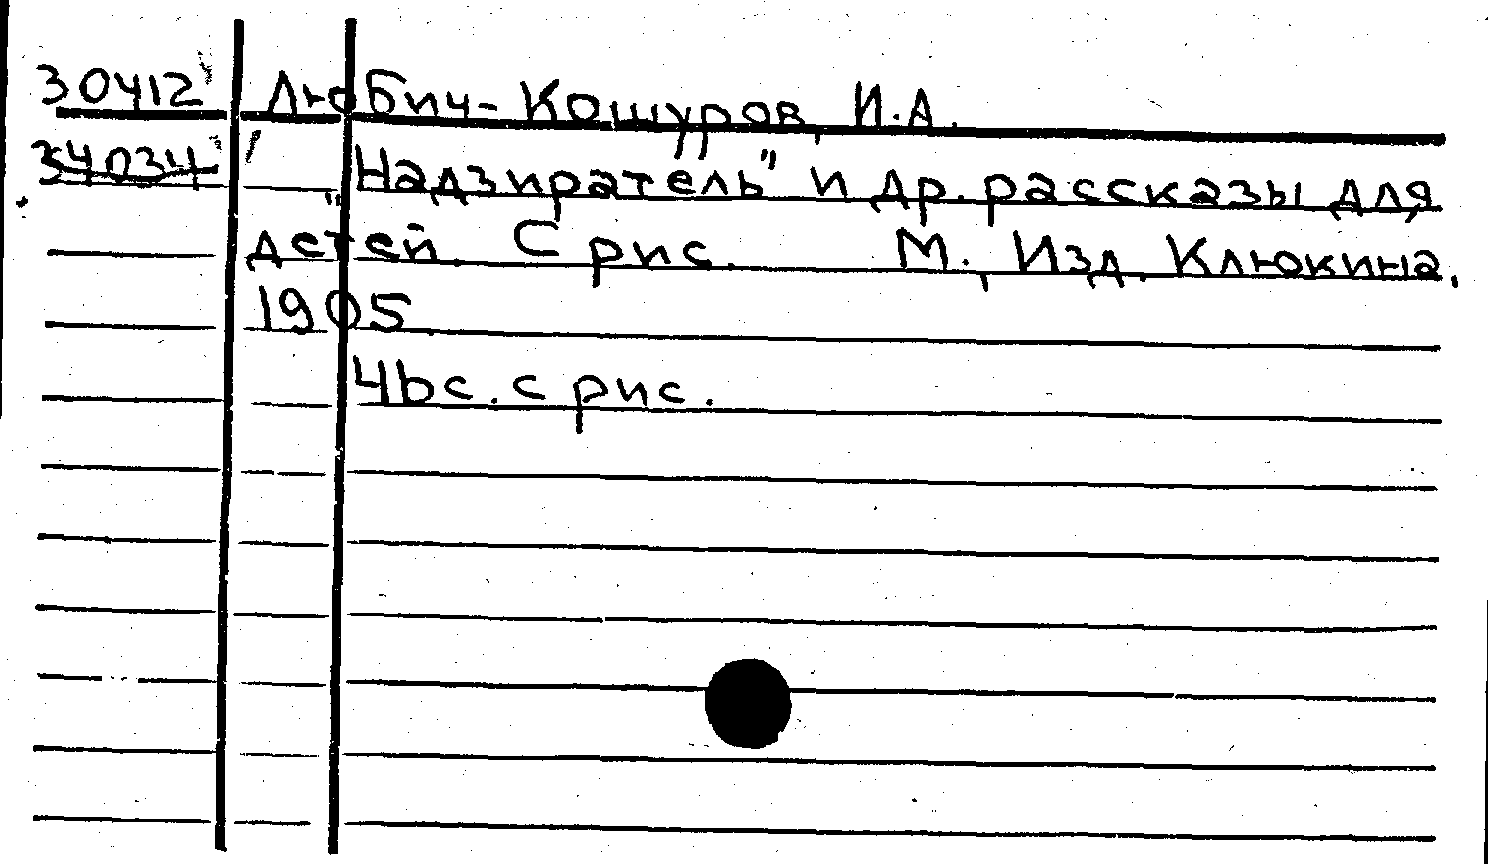 30412 Любич-Кошуров, И.А.
34034 "Надзиратель" и др. рассказы для
детей. С рис. М., Изд. Клюкина,
1905
4bc. с рис.